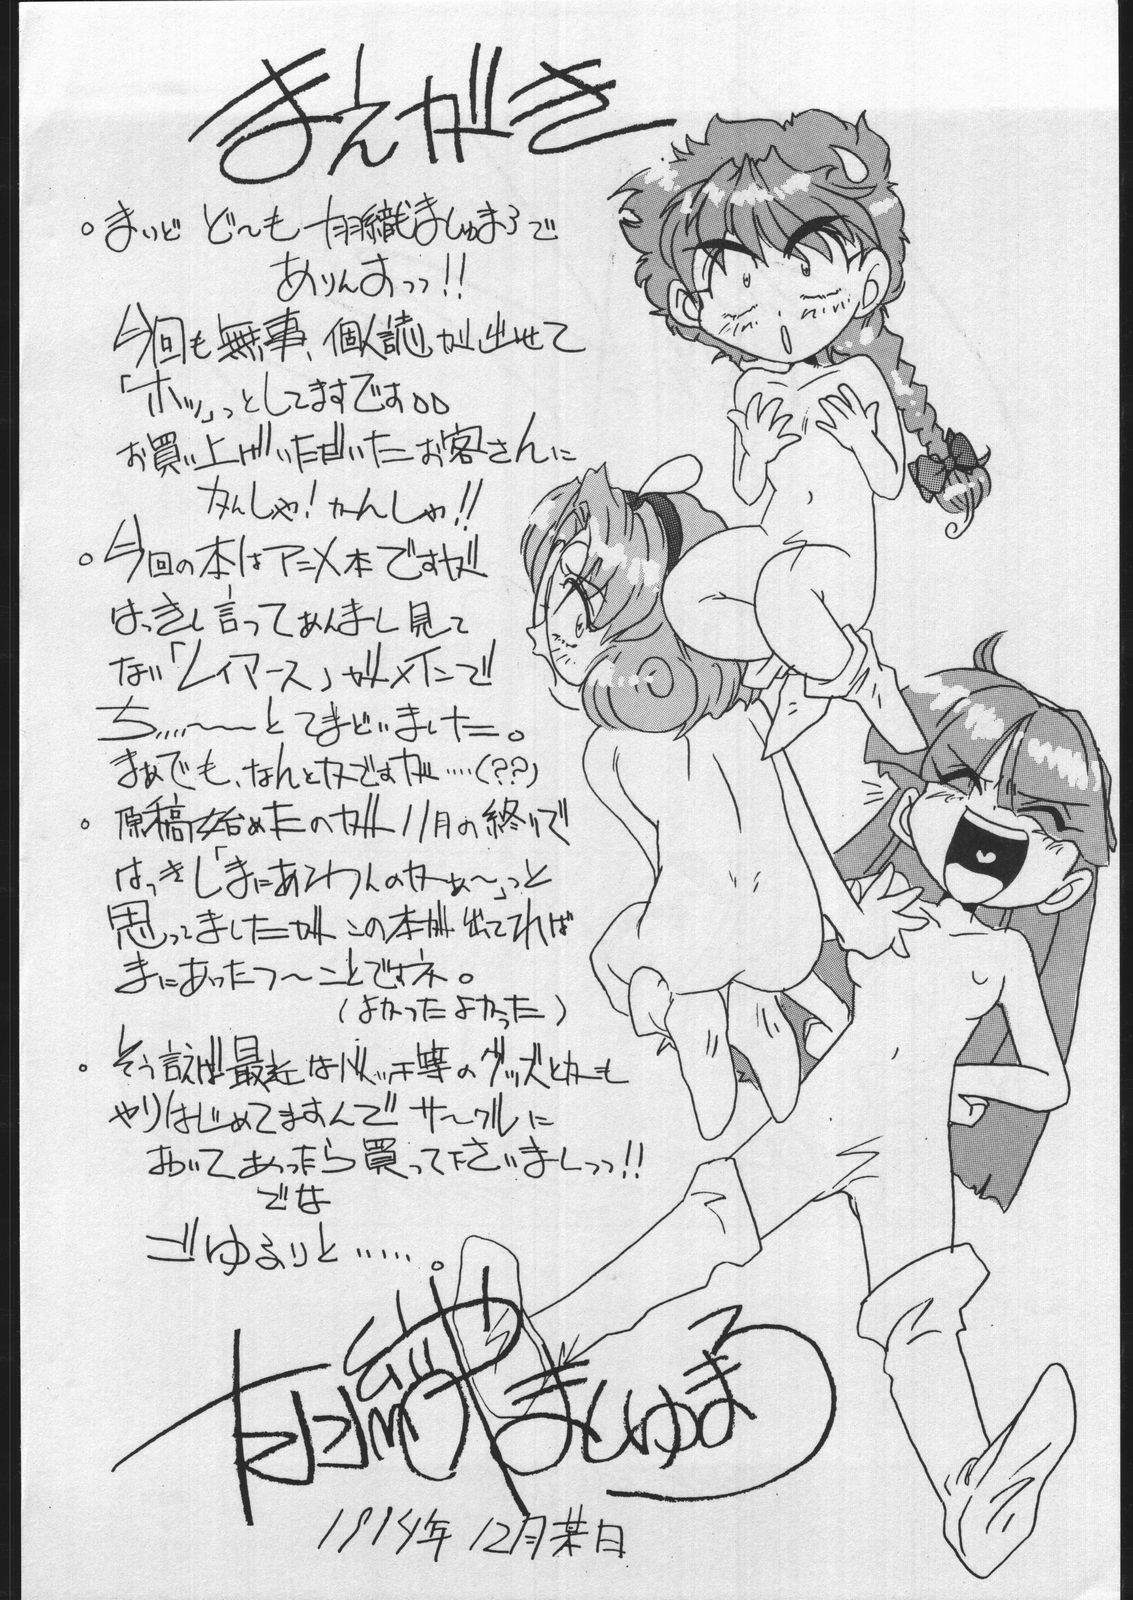 まえがき
。まいど ど〜も 羽織ましゅまろで
ありんすっっ!!
今回も無事、個人誌が出せて
「ホッ」っとしてますですぅぅ
お買い上げいただいたお客さんに
かんしゃ!かんしゃ!!
。今回の本はアニメ本ですが
はっきし言ってあんまし見て
ない「レイアース」がメインで
ち,,,,〜〜とてまどいました。
まぁでも、なんとかですが……(??)
。原稿始めたのが11月の終りで
はっきし「まにあわんのかぁ〜」っと
思ってましたが この本が出てれば
まにあったつ〜ことですネ。
(よかったよかった)
。そう言えば最近はバッチ等のグッズとかも
やりはじめてますんでサークルに
おいてあったら買って下さいましっっ!!
でわ
ごゆるりと……。
羽織ましゅまろ
1994年 12月某日